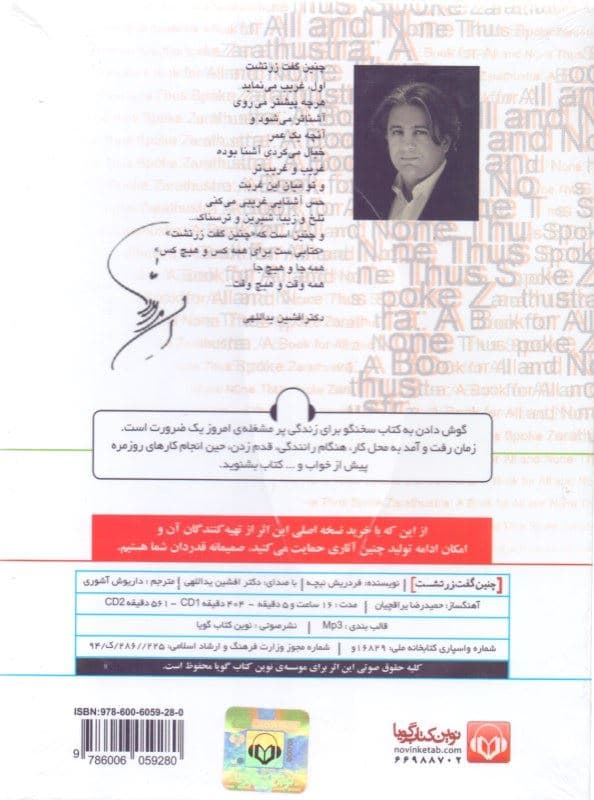 چنین گفت زرتشت
اول، غریب می‌نماید
هرچه پیشتر می‌روی
آشناتر می‌شود و
آنچه یک عمر
خیال می‌کردی آشنا بوده
غریب و غریب‌تر
و تو میان این غربت
حس آشنایی غریبی می‌کنی
تلخ و زیبا، شیرین و ترسناک...
و چنین است که «چنین گفت زرتشت»
«کتابی‌ست برای همه کس و هیچ کس»
همه جا و هیچ جا
همه وقت و هیچ وقت...
دکتر افشین یداللهی
All and None Thus Spoke Zarathustra: A Book for All and None
گوش دادن به کتاب سخنگو برای زندگی پر مشغله‌ی امروز یک ضرورت است.
زمان رفت و آمد به محل کار، هنگام رانندگی، قدم زدن، حین انجام کارهای روزمره
پیش از خواب و ... کتاب بشنوید.
از این که با خرید نسخه اصلی این اثر از تهیه‌کنندگان آن و
امکان ادامه تولید چنین آثاری حمایت می‌کنید، صمیمانه قدردان شما هستیم.
[چنین گفت زرتشت] نویسنده: فردریش نیچه | با صدای: دکتر افشین یداللهی | مترجم: داریوش آشوری
آهنگساز: حمیدرضا یراقچیان | مدت: ۱۶ ساعت و ۵ دقیقه - ۴۰۴ دقیقه CD1 - ۵۶۱ دقیقه CD2
قالب بندی: Mp3 | نشر صوتی: نوین کتاب گویا
شماره واسپاری کتابخانه ملی: ۱۶۸۲۹و | شماره مجوز وزارت فرهنگ و ارشاد اسلامی: ۲۲۵//۲۸۶/ک/۹۴
کلیه حقوق صوتی این اثر برای موسسه‌ی نوین کتاب گویا محفوظ است.
ISBN:978-600-6059-28-0
9 786006 059280
نوین کتاب گویا
novinketab.com
۶۶۹۸۸۷۰۲